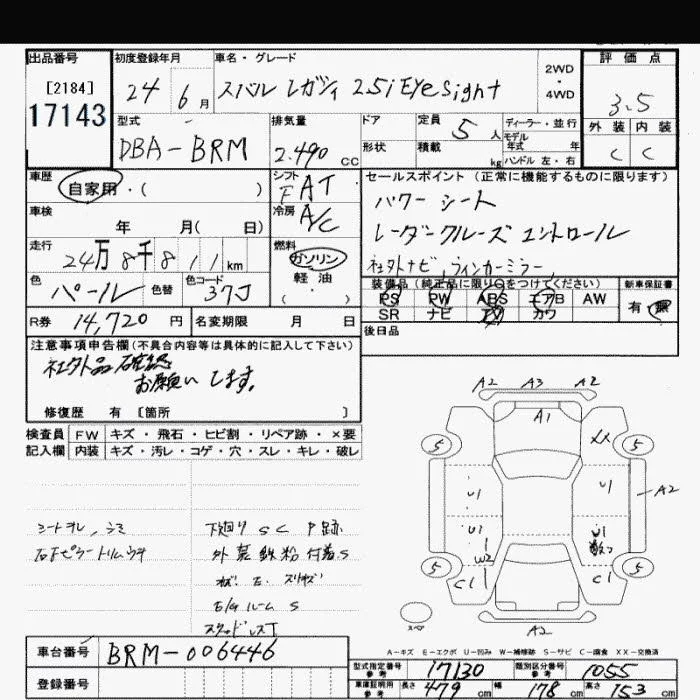 出品番号 初度登録年月 車名・グレード 評価点
[2184] 24 6月 スバル レガシィ 2.5i EyeSight 2WD・4WD 3.5
17143 型式 排気量 ドア 定員 5人 ディーラー・並行 外装 内装
DBA-BRM 2.490cc 形状 積載 kg モデル年式 年 ハンドル 左・右 C C
車歴 自家用・( ) シフト FAT セールスポイント(正常に機能するものに限ります)
車検 年 月( 日) 冷房 A/C パワーシート
走行 24万8千811km 燃料 ガソリン レーダークルーズコントロール
色 パール 色替 色コード 37J 軽油 ( ) 社外ナビ、ウィンカーミラー
装備品(純正品に限り○をつけてください) 新車保証書
PS PW ABS エアB AW 有・無
SR ナビ カワ
R券 14,720円 名変期限 月 日 後日品
注意事項申告欄(不具合内容等は具体的に記入して下さい)
社外品確認
お願いします。
修復歴 有 [箇所 ]
検査員 FW キズ・飛石・ヒビ割・リペア跡・×要
記入欄 内装 キズ・汚レ・コゲ・穴・スレ・キレ・破レ
シートヨレ、シミ
下廻り S C P跡
外装鉄粉付着S
S
A2 A3 A2
A1
5 XX 5
U1 U1 A2
U1 U1
W2
5 C1 C1 5
A2
スペア
A-キズ E-エクボ U-凹み W-補修跡 S-サビ C-腐食 XX-交換済
車台番号 BRM-006446
登録番号
型式指定番号 参考 17130 類別区分番号 参考 1055
車庫証明用 参考 長さ 479cm 幅 178cm 高さ 153cm